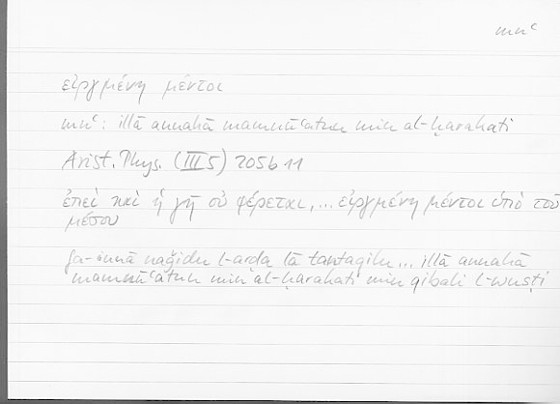 mnʿ
εἰργμένη μέντοι
mnʿ: illā annahā mamnūʿatun min al-ḥarakati
Arist. Phys. (III 5) 205b11
ἐπεὶ καὶ ἡ γῆ οὐ φέρεται, ... εἰργμένη μέντοι ὑπὸ τοῦ
μέσου
fa-innā naǧidu l-arḍa lā tantaqilu... illā annahā
mamnūʿatun min al-ḥarakati min qibali l-wusṭi